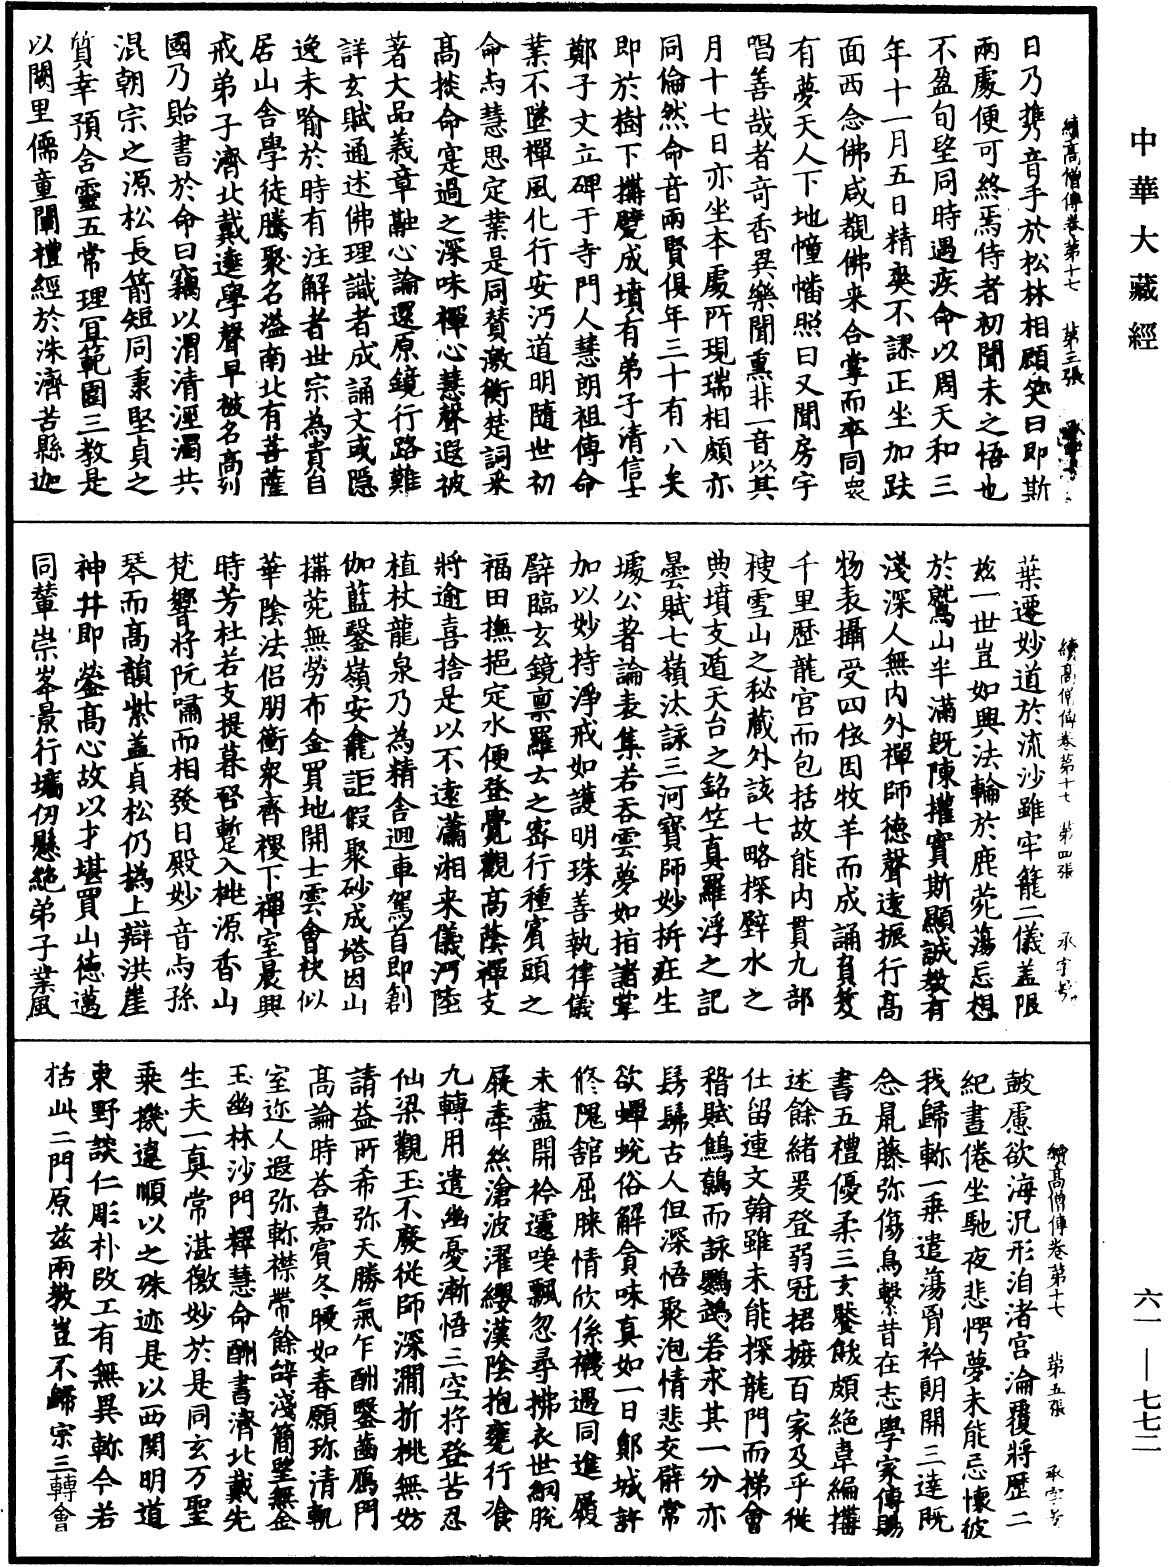 中華大藏經
續高僧傳卷第十七 第三張
日乃攜音手於松林相顧笑曰即斯
兩處便可終焉侍者初聞未之悟也
不盈旬望同時遇疾命以周天和三
年十一月五日精爽不謬正坐加趺
面西念佛咸覩佛来合掌而卒同衆
有夢天人下地幢幡照日又聞房宇
唱善哉者奇香異樂聞熏非一音以其
月十七日亦坐本處所現瑞相頗亦
同倫然命音兩賢俱年三十有八矣
即於樹下搆甓成墳有弟子清信士
鄭子文立碑于寺門人慧朗祖傳命
業不墜禪風化行安沔道明隨世初
命与慧思定業是同贊激衡楚詞采
高掞命寔過之深味禪心慧聲遐被
著大品義章融心論還原鏡行路難
詳玄賦通述佛理識者成誦文或隱
逸未喻於時有注解者世宗為貴自
居山舍學徒騰聚名溢南北有菩薩
戒弟子濟北戴逵學聲早被名高列
國乃貽書於命曰竊以渭清涇濁共
混朝宗之源松長箭短同秉堅貞之
質幸預含靈五常理冥範圍三教是
以闕里儒童闡禮經於洙濟苦縣迦
續高僧傳卷第十七 第四張 承字号
葉遷妙道於流沙雖牢籠二儀蓋限
兹一世豈如興法輪於鹿苑蕩忘想
於鷲山半滿既陳權實斯顯誠教有
淺深人無内外禪師德聲遠振行高
物表攝受四依因牧羊而成誦負笈
千里歷龍宮而包括故能内貫九部
䅳雪山之秘藏外該七略探璧水之
典墳支遁天台之銘竺真羅浮之記
曇賦七嶺汰詠三河寶師妙折莊生
璩公著論表集若吞雲夢如指諸掌
加以妙持淨戒如護明珠善執律儀
辟臨玄鏡禀羅云之密行種賓頭之
福田撫挹定水便登覺觀高蔭禪支
將逾喜捨是以不遠瀟湘来儀沔陸
植杖龍泉乃為精舍迴車駕首即創
伽藍鑿嶺安龕詎假聚砂成塔因山
搆苑無勞布金買地開士雲會袂似
華陰法侶朋衝衆齊稷下禪室晨興
時芳杜若支提暮啓蹔入桃源香山
梵響将阮嘯而相發日殿妙音与孫
琴而高韻紫蓋貞松仍撝上辯洪崖
神井即瑩高心故以才堪買山德邁
同輦崇岑景行墉仞懸絶弟子業風
續高僧傳卷第十七 第五張
鼓慮欲海沉形洎渚宮淪覆將歷二
紀晝倦坐馳夜悲愕夢未能忘懷彼
我歸軫一乘遣蕩胷衿朗開三達既
念鼠藤弥傷鳥繫昔在志學家傳賜
書五禮優柔三玄鑒飫頗絶韋編搆
述餘緒爰登弱冠捃摭百家及乎從
仕留連文翰雖未能探龍門而梯會
稽賦鷦鷯而詠鸚鵡若求其一分亦
髣髴古人但深悟聚泡情悲交臂常
欲蟬蛻俗解貪味真如一日鄖城許
修隗舘屈膝情欣係襪遇同進履
未盡開衿遽嗟飄忽尋拂衣世網脱
屣牽絲滄波濯纓漢陰抱甕行飡
九轉用遣幽憂漸悟三空将登苦忍
仙梁觀玉不廢從師深澗折桃無妨
請益所希弥天勝氣乍酬鑿齒鴈門
高論時荅嘉賓冬暖如春願珎清軌
室迩人遐弥軫襟帶餘辭淺簡望無金
玉幽林沙門釋慧命酬書濟北戴先
生夫一真常湛徼妙於是同玄万聖
乘機違順以之殊迹是以西関明道
東野談仁彫朴改工有無異軫今若
括此二門原兹兩教豈不歸宗三轉會
六一—七七二